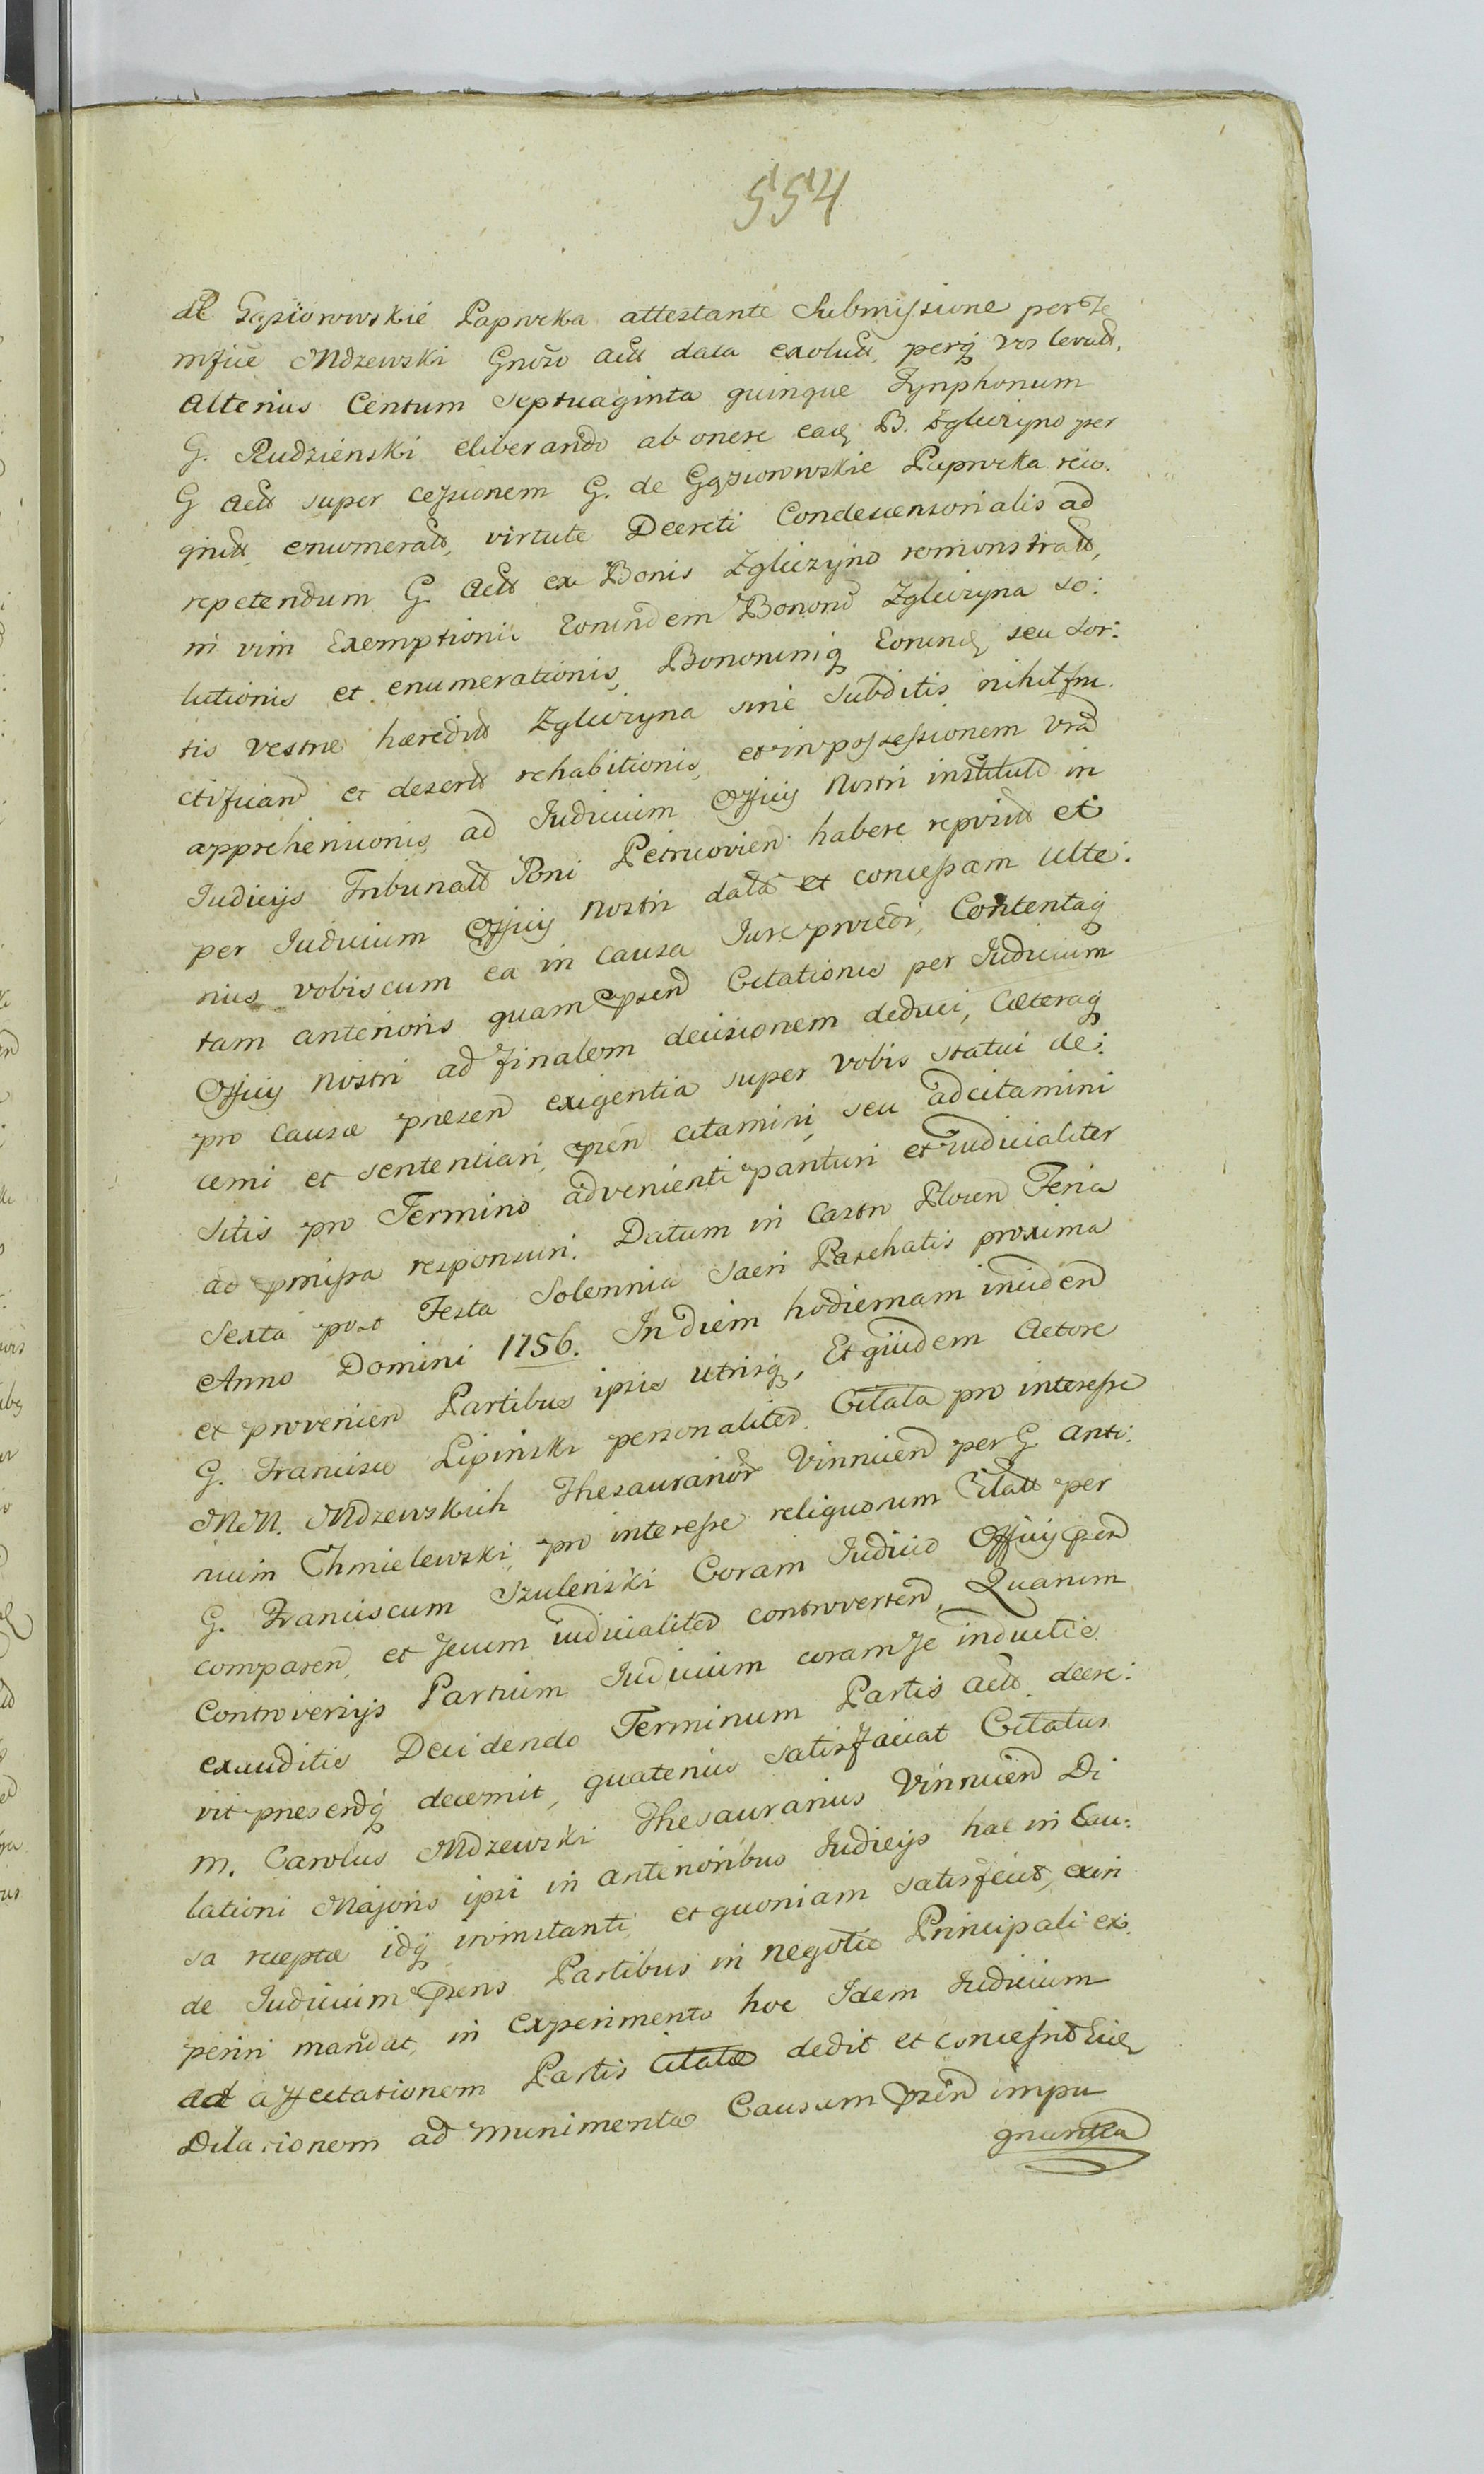 554
de Gąsiorowskie Paprocka attestante Submissione per Te
mfice Mdzewski Gnoso Actt data exolutt, perq vos levatt,
Alterius Centum Septuaginta quinque Tynphonum
G. Rudzienski eliberando ab onere eade B. Zgliczyno per
G Actt super cessionem G. de Gąsiorowskie Paprocka reco.
gnitt, enumeratt, virtute Decreti Condescensorialis ad
repetendum G. Actt ex Bonis Zgliczyno remonstratt,
in vim Exemptionis Eorundem Bonord Zgliczyna so:
lutionis et enumerationis, Bonorumq Eorund, seu Sor:
tis vestrae haereditt Zgliczyna sine Subditis nihil fru.
ctificand et desertt rehabitionis, et in possessionem vrad
apprehensionis ad Judicium Officij Nostri institutd in
Judicijs Tribunatt Rgni Petricovien habere repositt et
per Judicium Officij Nostri data et concessam Ulte:
rius vobiscum ea in causa Jure procedi, Contentaq
tam anterioris quam psend Citationis per Judicium
Officij Nostri ad finalem decisionem deduci, Caeteraq
pro causae praesend exigentia super vobis statui de:
cerni et sententiari, pren citamini, seu adcitamini
sitis pro Termino advenienti parituri et judicialiter
ad pmissa responsuri. Datum in Castro Plocen Feria
Sexta post Festa Solennia Sacri Paschatis proxima
Anno Domini 1756. In diem hodiernam inciden
et provenien Partibus ipsis utrisq, Et quidem Actore
G. Francisco Lipinski personaliter. Citata pro interesse
MM. Mdzewskich Thesaurarior Vinnicen per G Anto:
nium Chmielewski, pro interesse reliquorum Citatt per
G. Franciscum Szulenski Coram Judicio Officij psen
comparen, et secum judicialiter controverten, Quarum
Controversijs Partium Judicium coram se inductis
exauditis Decidendo Terminum Partis Actt decre:
vit praesenq decernit, quatenus satisfaciat Citatus
M. Carolus Mdzewski Thesaurarius Vinnicen Di
lationi Majoris ipsi in anterioribus Judicijs hac in Cau:
sa receptae idq in instanti, et quoniam satisfecit, exin
de Judicium psens Partibus in negotio Principali ex:
periri mandat, in experimento hoc Idem Judicium
ad affectationem Partis Citatae dedit et concessit Eid
Dilationem ad Munimenta Causam psen impu
gnantia